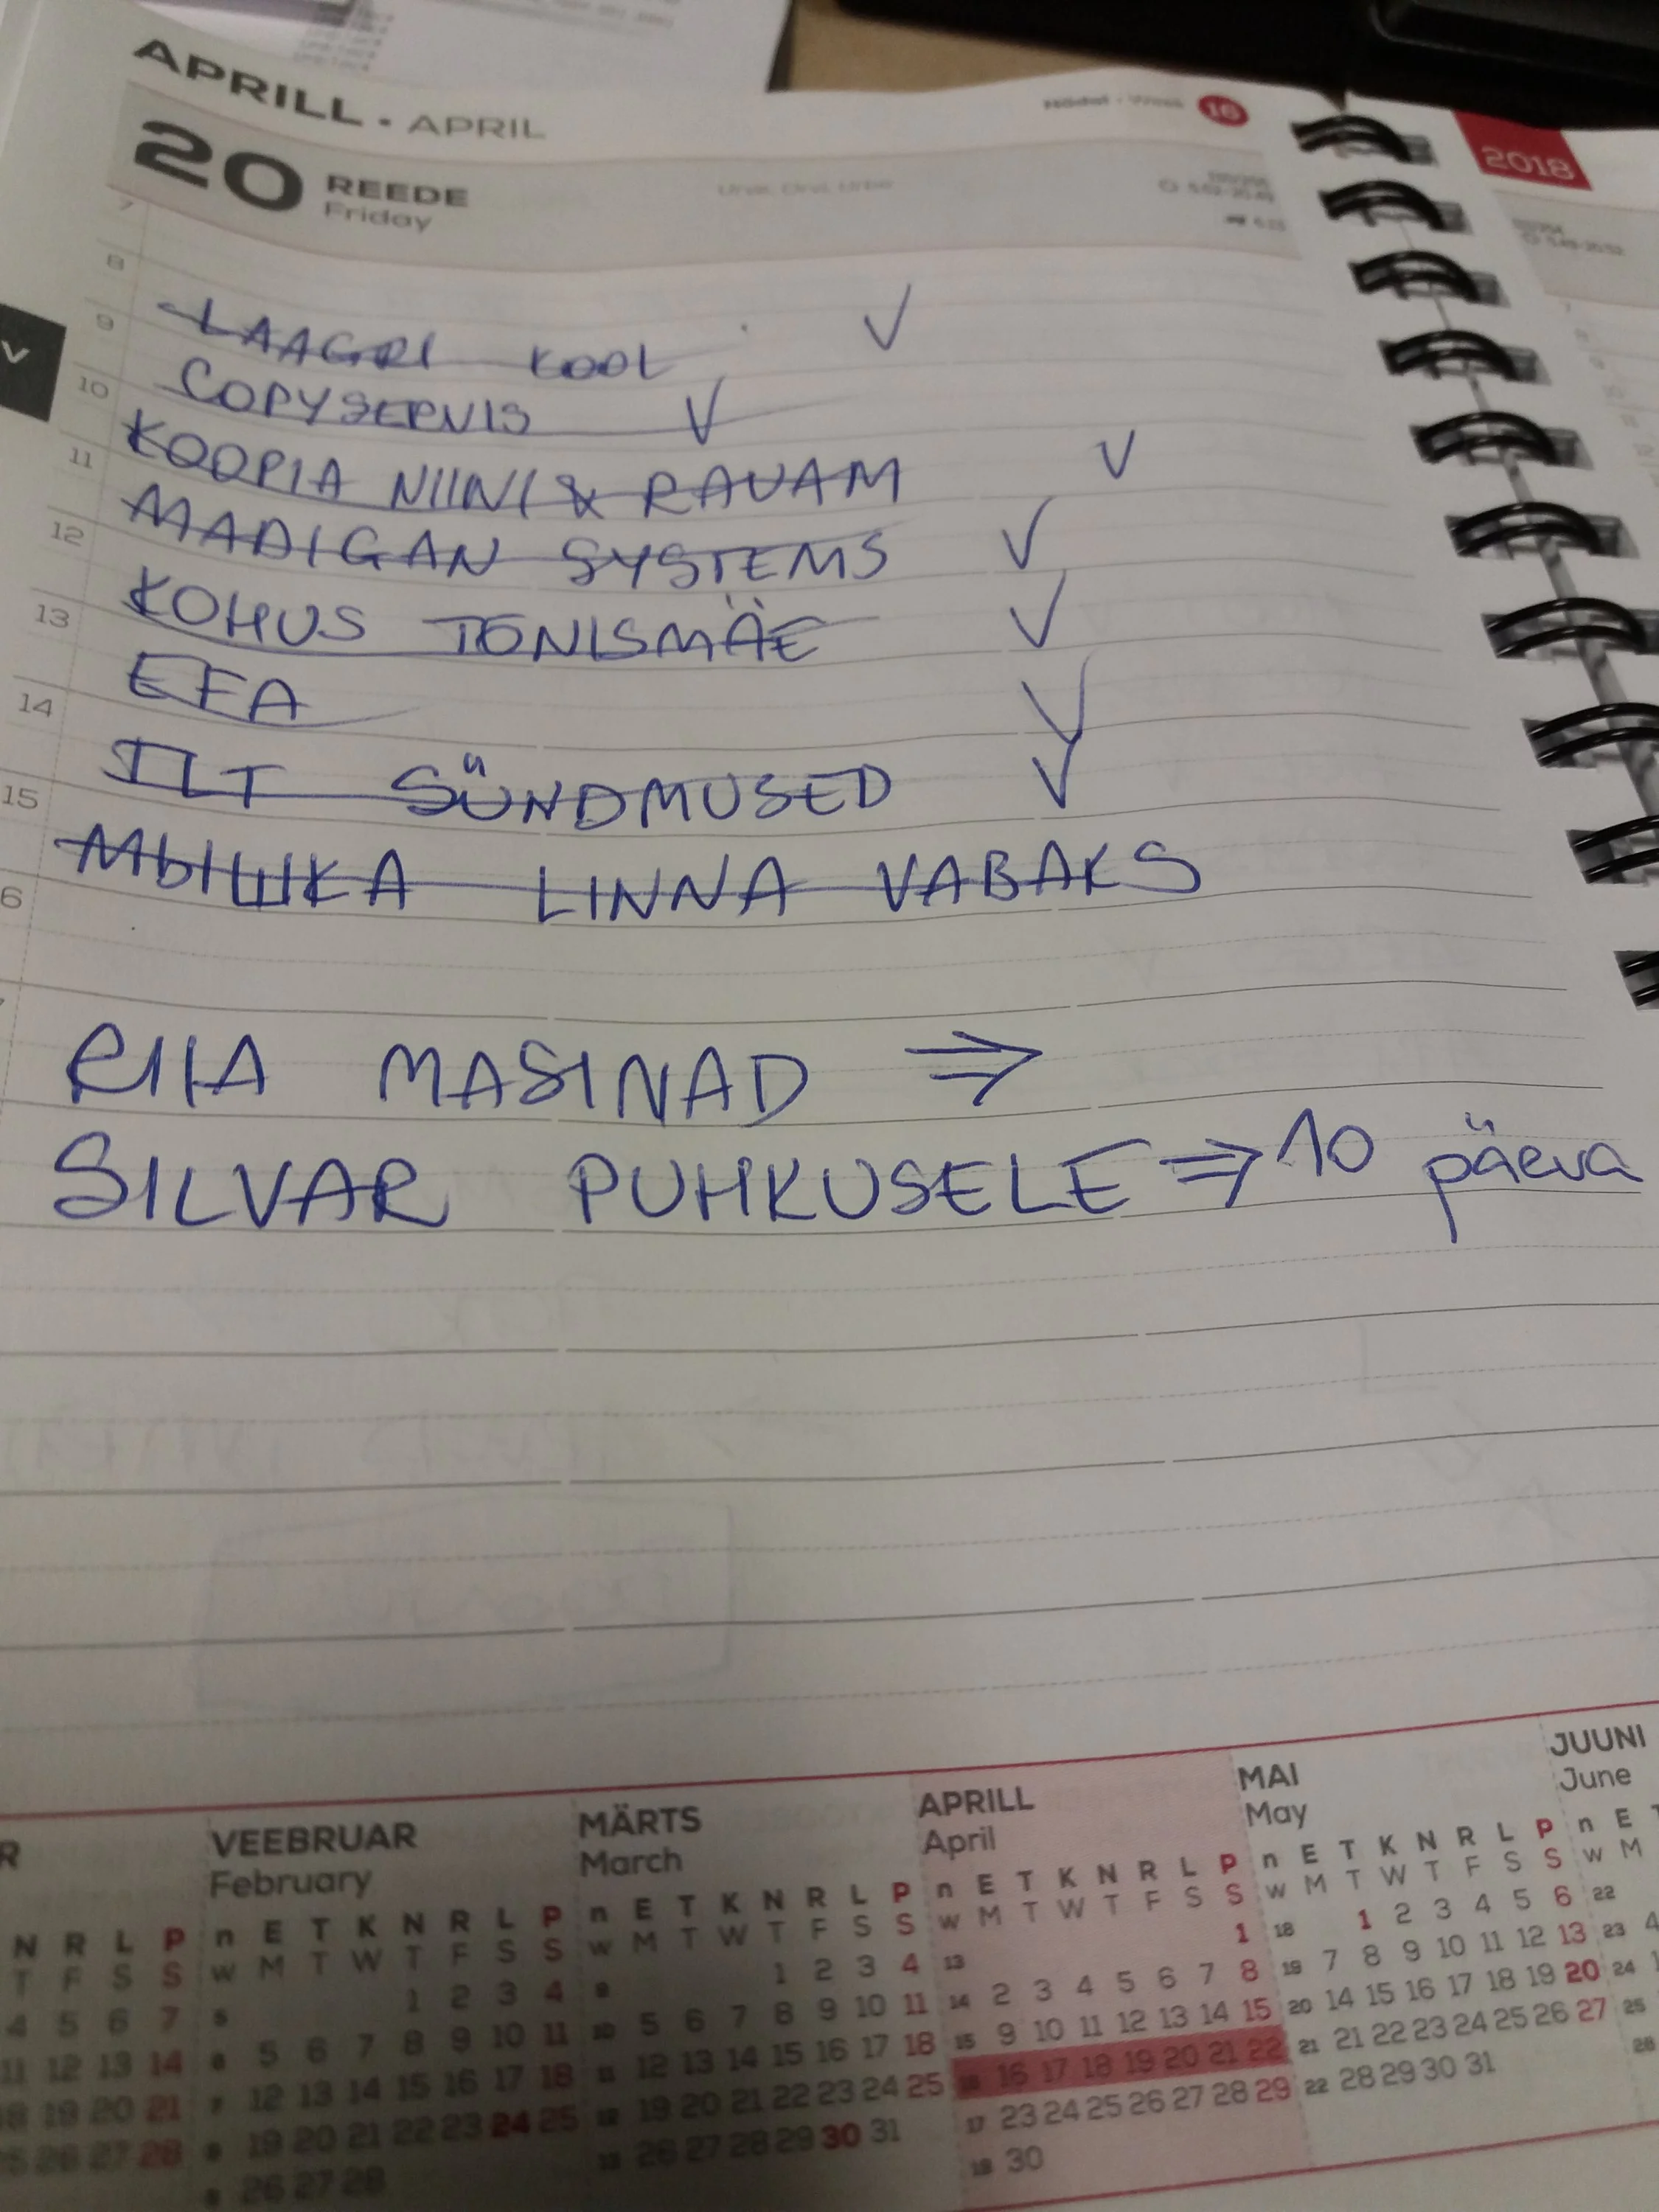 APRILL • APRIL
Nädal • Week 16
2018
20 REEDE
Friday
7
8
9 LAAGRI KOOL V
10 COPYSERVIS V
11 KOOPIA NIINI & RAUAM V
12 MADIGAN SYSTEMS V
13 KOHUS TÕNISMÄE V
14 EFA V
15 ILT SÜNDMUSED V
МЫШКА LINNA VABAKS
6
RIIA MASINAD ⇒
SILVAR PUHKUSELE ⇒ 10 päeva
R VEEBRUAR MÄRTS APRILL MAI JUUNI
February March April May June
N R L P n E T K N R L P n E T K N R L P n E T K N R L P n E T K N R L P n E T
T F S S w M T W T F S S w M T W T F S S w M T W T F S S w M T W T F S S w M
4 5 6 7 5 1 2 3 4 9 1 2 3 4 13 1 18 1 2 3 4 5 6 22
11 12 13 14 6 5 6 7 8 9 10 11 10 5 6 7 8 9 10 11 14 2 3 4 5 6 7 8 19 7 8 9 10 11 12 13 23 4
18 19 20 21 7 12 13 14 15 16 17 18 11 12 13 14 15 16 17 18 15 9 10 11 12 13 14 15 20 14 15 16 17 18 19 20 24
25 26 27 28 8 19 20 21 22 23 24 25 12 19 20 21 22 23 24 25 16 16 17 18 19 20 21 22 21 21 22 23 24 25 26 27 25
9 26 27 28 13 26 27 28 29 30 31 17 23 24 25 26 27 28 29 22 28 29 30 31 26
18 30